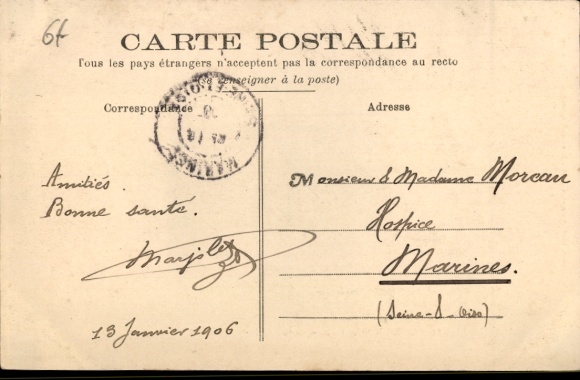 6f
CARTE POSTALE
Tous les pays étrangers n'acceptent pas la correspondance au recto
(se renseigner à la poste)
Correspondance
Adresse
MARINES
SEINE-ET-OISE
Amitiés.
Bonne santé.
13 Janvier 1906
Monsieur & Madame Moreau
Hospice
Marines.
(Seine-&-Oise)